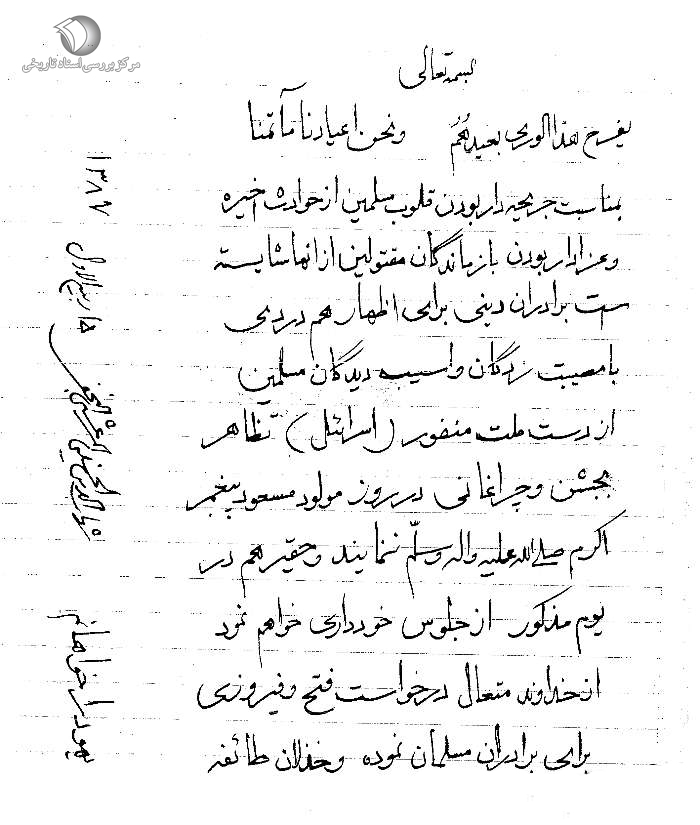 مرکز بررسی اسناد تاریخی
بسمه تعالی
یفرح هذا الوری بعیدهم ونحن اعیادنا مآتمنا
بمناسبت جریحه دار بودن قلوب مسلمین از حوادث اخیره
وعزادار بودن بازماندگان مقتولین از انها شایسته
است برادران دینی برای اظهار هم دردی
با مصیبت زدگان واسیب دیدگان مسلمین
از دست ملت منفور (اسرائیل) تظاهر
بجشن و چراغانی در روز مولود مسعود پیغمبر
اکرم صلی الله علیه واله وسلم ننمایند وحقیر هم در
یوم مذکور از جلوس خودداری خواهم نمود
از خداوند متعال درخواست فتح وفیروزی
برای برادران مسلمان نموده وخذلان طائفه
یهود را خواهانم
شهاب الدین الحسینی المرعشی النجفی
ربیع الاول ۱۳۸۷